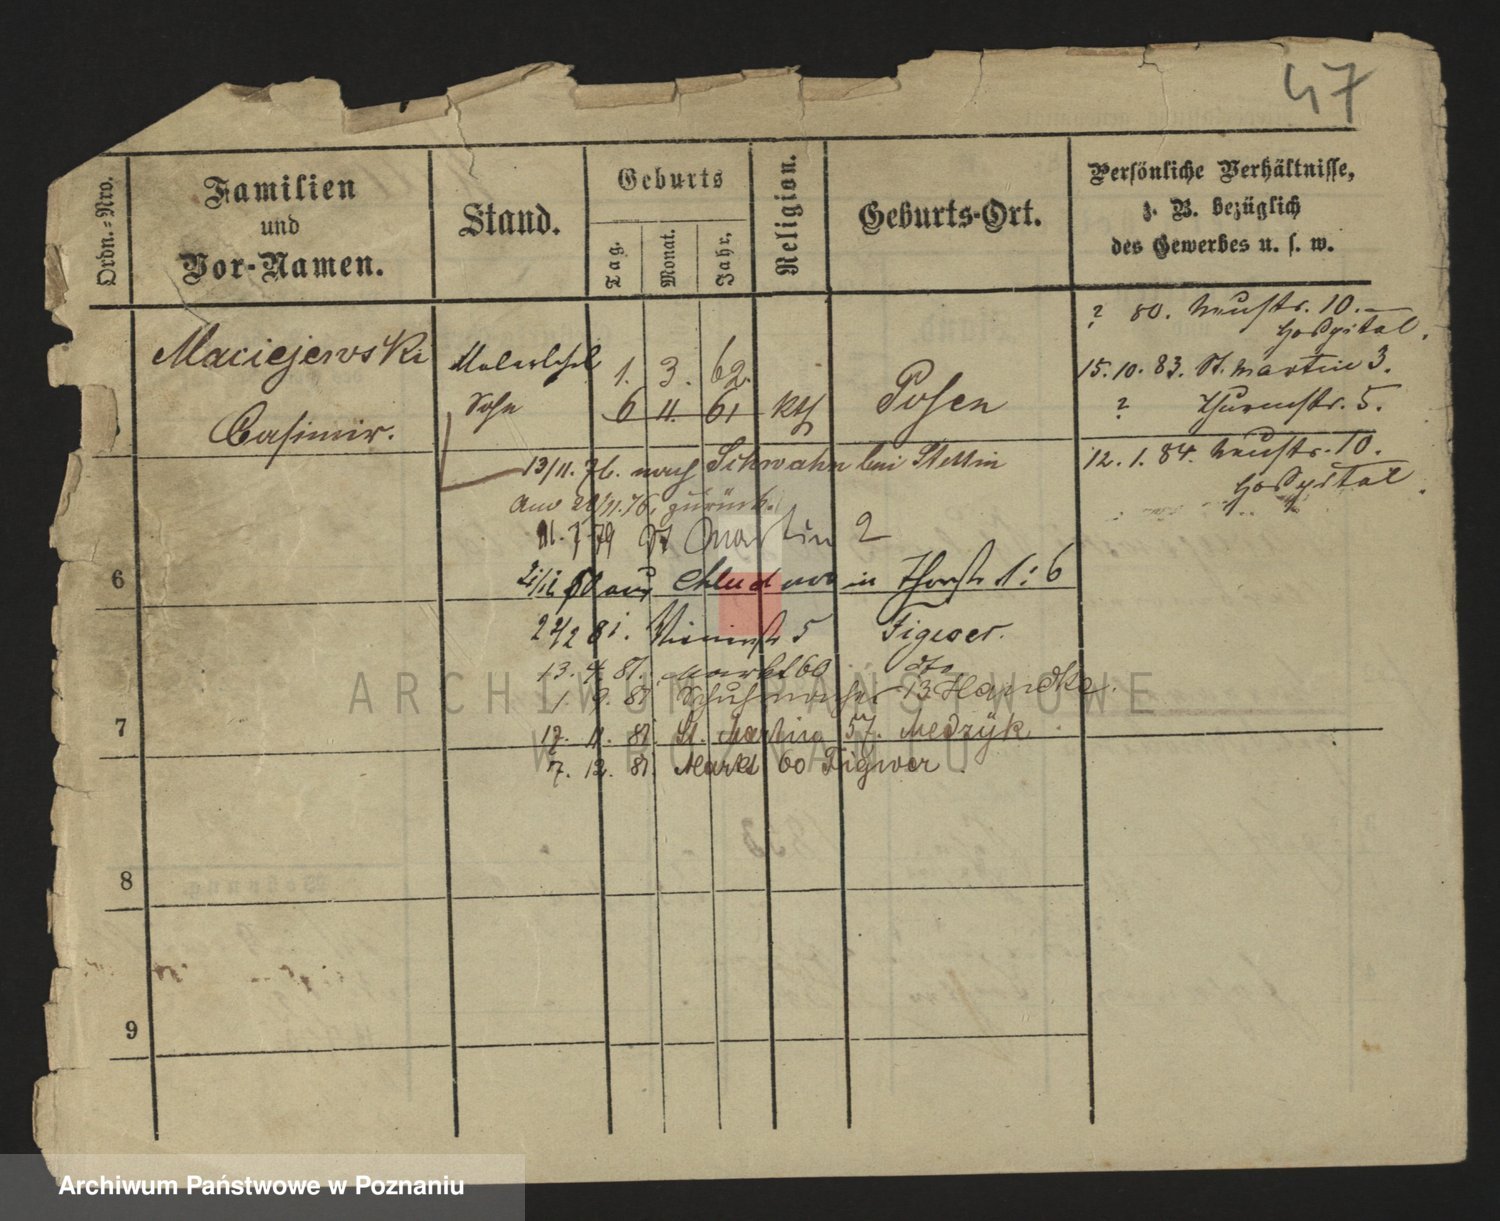 47
Ordn.-Nro.
Familien
und
Vor-Namen.
Stand.
Geburts
Tag.
Monat.
Jahr,
Religion.
Geburts-Ort.
Persönliche Verhältnisse,
z. B. bezüglich
des Gewerbes u. s. w.
Maciejewski
Casimir.
Sohn
1. 3. 62.
6 11. 61 kth
Posen
? 80. Neustr. 10.
Hospital.
15. 10. 83. St. Martin 3.
? Thurmstr. 5.
12. 1. 84. Neustr. 10.
Hospital.
13/11. 76. nach Schwahn bei Stettin
22/11. 76. zurück.
11. 7. 79 St Martin 2
6
22/2 81. 5 Figwer.
13. 4. 81. Markt 60 dto
1. 9. 81 13 Handke.
7
17. 11. 81. St. Martin 57. Medzyk
7. 12. 81. Markt 60 Figwer.
8
9
ARCHIWUM PAŃSTWOWE
W POZNANIU
Archiwum Państwowe w Poznaniu